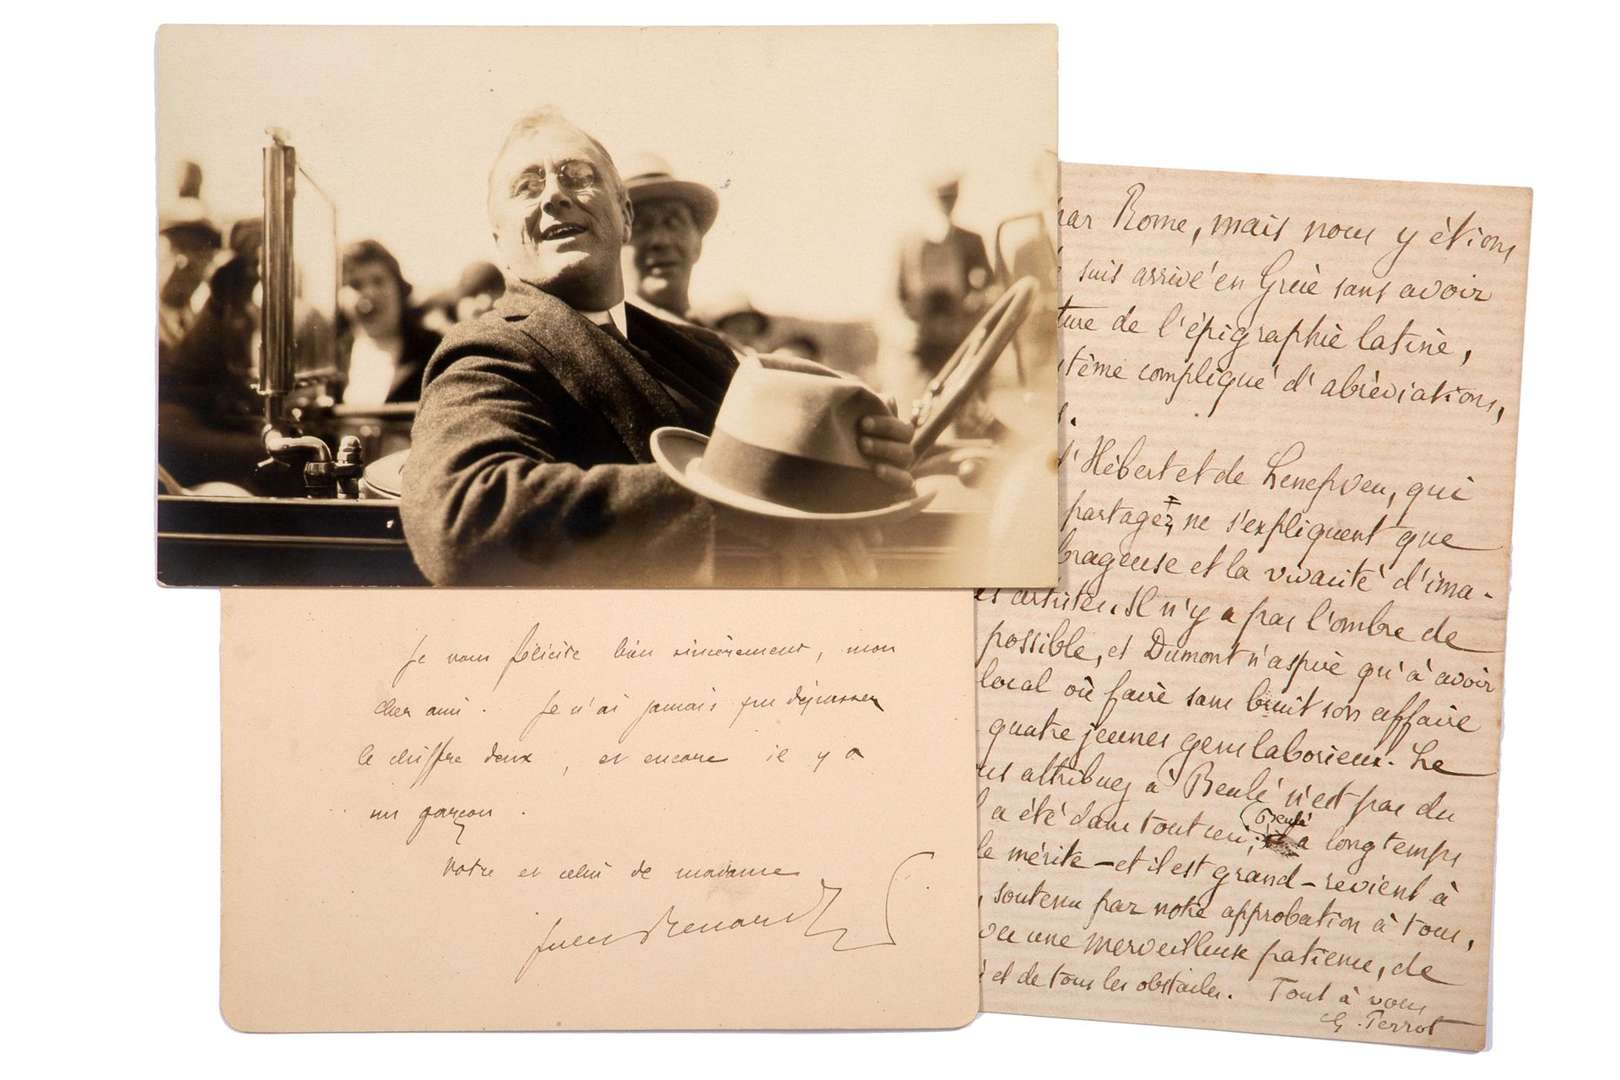 Je vous félicite bien sincèrement, mon
cher ami. Je n'ai jamais pu dépasser
le chiffre deux, et encore il y a
un garçon.
Votre et celui de madame
Jules Renard
par Rome, mais nous y étions
suis arrivé en Grèce sans avoir
ture de l'épigraphie latine,
stème compliqué d'abréviations,
d'Hébert et de Lenepveu, qui
partagez, ne s'expliquent que
brageuse et la vivacité d'ima-
es artistes. Il n'y a pas l'ombre de
possible, et Dumont n'aspire qu'à avoir
local où faire sans bruit son affaire
quatre jeunes gens laborieux. Le
us attribuez à Beulé n'est pas du
a été dans tout ceci; Beulé a longtemps
le mérite – et il est grand – revient à
, soutenu par notre approbation à tous,
vec une merveilleuse patience, de
et de tous les obstacles. Tout à vous
G. Perrot